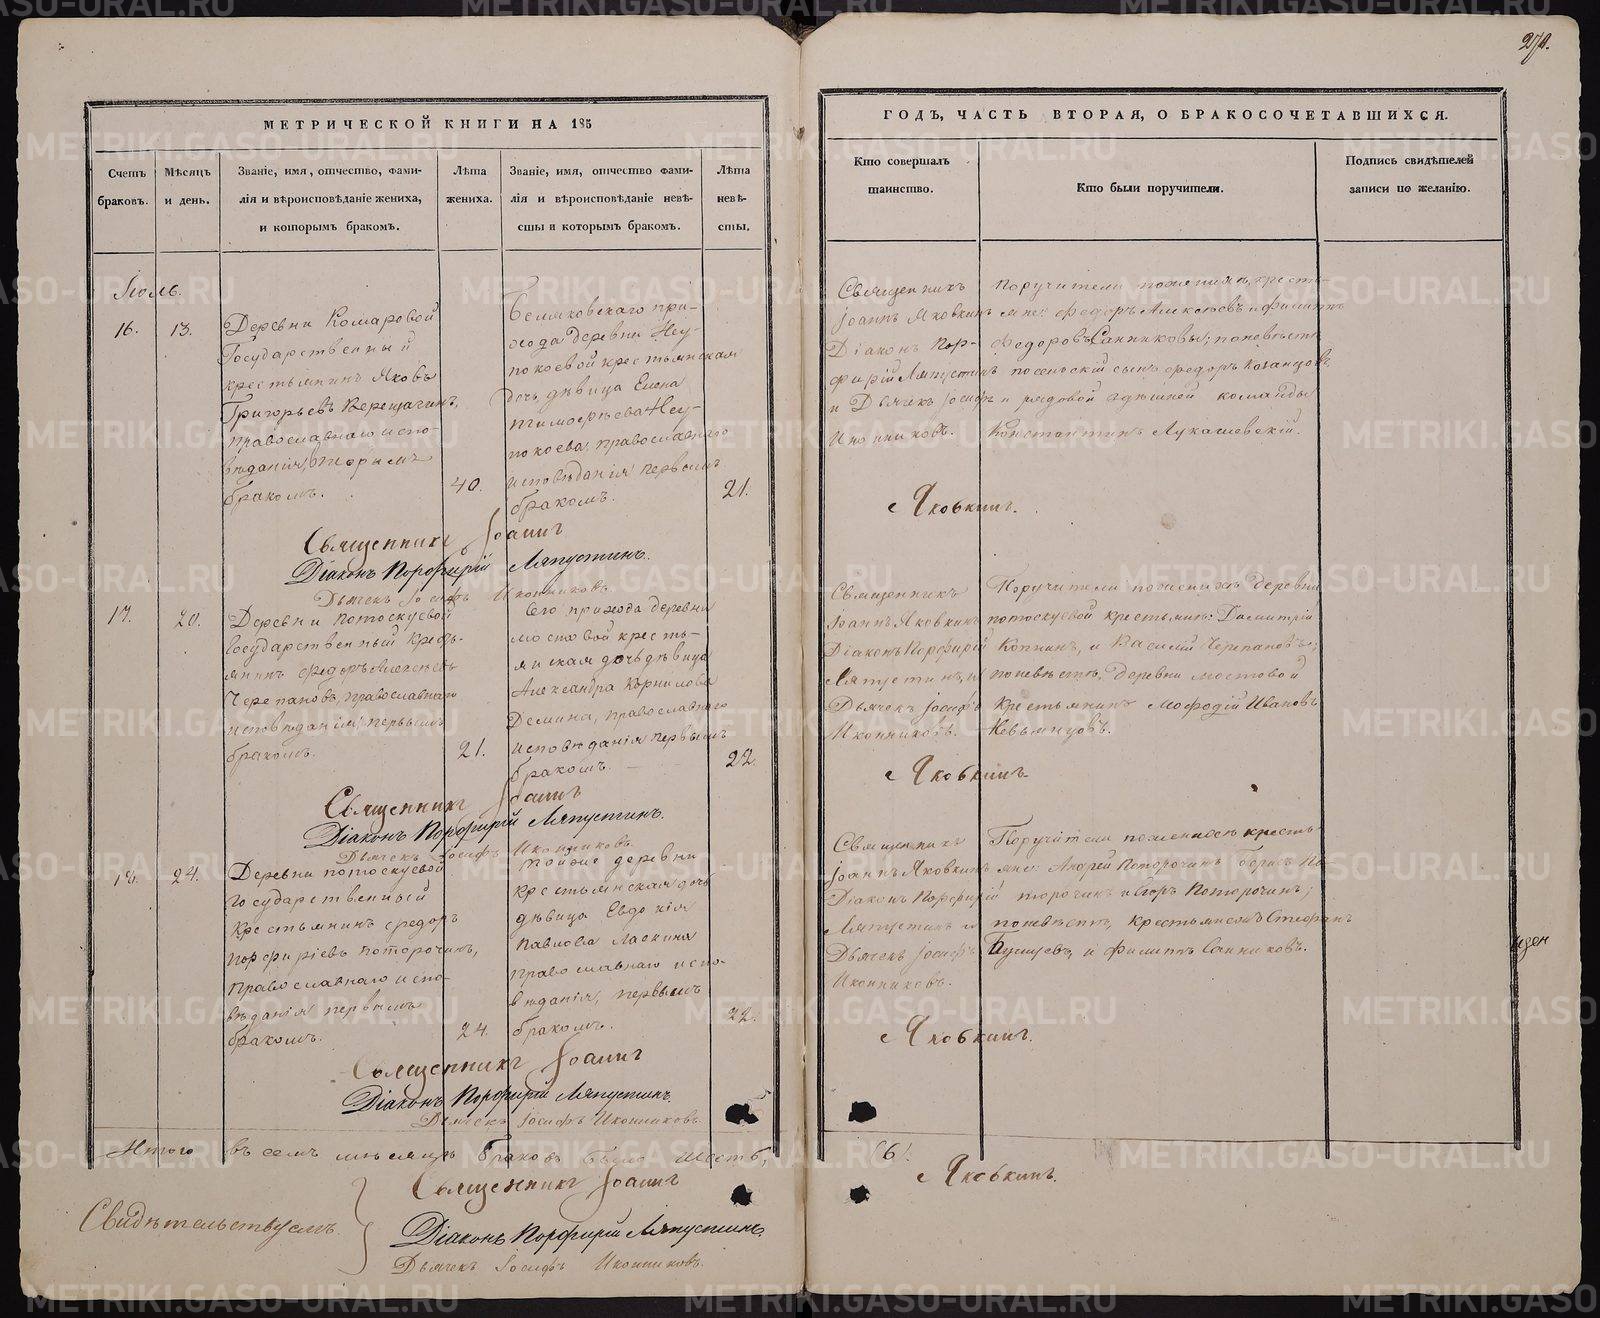 МЕТРИЧЕСКОЙ КНИГИ НА 185
Счетъ браковъ.
Мѣсяцъ и день.
Званіе, имя, отчество, фами-
лія и вѣроисповѣданіе жениха,
и которымъ бракомъ.
Лѣта жениха.
Званіе, имя, отчество фами-
лія и вѣроисповѣданіе невѣ-
сты и которымъ бракомъ.
Лѣта невѣ-
сты.
Іюль.
16.
13.
Деревни Комаровой
Государственный
крестьянинъ Яковъ
Григорьевъ Верещагинъ,
православнаго испо-
вѣданія, вторымъ
бракомъ.
40.
Беляковскаго при-
хода деревни Неу-
покоевой крестьянская
дочь дѣвица Елена
Тимофеева Неу-
покоева, православнаго
исповѣданія первымъ
бракомъ.
21.
Священникъ Іоаннъ
Діаконъ Порфирій Ляпустинъ.
Дьячекъ Іосифъ Иконниковъ
17.
20.
Деревни Потоскуевой
Государственный кресть-
янинъ Федоръ Алексѣевъ
Черепановъ, православнаго
исповѣданія, первымъ
бракомъ.
21.
Сего прихода деревни
Мостовой кресть-
янская дочь дѣвица
Александра Корнилова
Демина, православнаго
исповѣданія первымъ
бракомъ.
22.
Священникъ Іоаннъ
Діаконъ Порфирій Ляпустинъ.
Дьячекъ Іосифъ Иконниковъ.
18.
24.
Деревни Потоскуевой
Государственный
Крестьянинъ Федоръ
Порфиріевъ Поторочинъ,
православнаго испо-
вѣданія первымъ
бракомъ.
24.
Тойже деревни
крестьянская дочь
дѣвица Евдокія
Павлова Ласкина
православнаго испо-
вѣданія, первымъ
бракомъ.
22.
Священникъ Іоаннъ
Діаконъ Порфирій Ляпустинъ.
Дьячекъ Іосифъ Иконниковъ.
Итого въ семъ мѣсяцѣ браковъ было шесть,
Свидѣтельствуемъ
Священникъ Іоаннъ
Діаконъ Порфирій Ляпустинъ.
Дьячекъ Іосифъ Иконниковъ.
ГОДЪ, ЧАСТЬ ВТОРАЯ, О БРАКОСОЧЕТАВШИХСЯ.
Кто совершалъ
таинство.
Кто были поручители.
Подпись свидѣтелей
записи по желанію.
Священникъ
Іоаннъ Яковкинъ
Діаконъ Пор-
фирій Ляпустинъ
и Дьячекъ Іосифъ
Иконниковъ.
Поручители по женихѣ, кресть-
яне: Федоръ Алексѣевъ и Филиппъ
Федоровъ Санниковы; по невѣстѣ
сынъ Федоръ Казанцовъ
и рядовой здѣшней команды
Константинъ Лукашевскій.
Яковкинъ.
Священникъ
Іоаннъ Яковкинъ
Діаконъ Порфирій
Ляпустинъ, и
Дьячекъ Іосифъ
Иконниковъ.
Поручители по женихѣ деревни
Потоскуевой крестьян: Димитрій
Копнинъ, и Василій Черепановъ;
по невѣстѣ, деревни Мостовой
Крестьянинъ Мофодій Ивановъ
Невьянцовъ.
Яковкинъ
Священникъ
Іоаннъ Яковкинъ
Діаконъ Порфирій
Ляпустинъ и
Дьячекъ Іосифъ
Иконниковъ.
Поручители по женихѣ кресть-
яне: Андрей Поторочинъ Борисъ По-
торочинъ и Егоръ Поторочинъ;
по невѣстѣ, крестьяне: Стефанъ
и Филиппъ Санниковъ.
Яковкинъ.
(6).
Яковкинъ.
METRIKI.GASO-URAL.RU